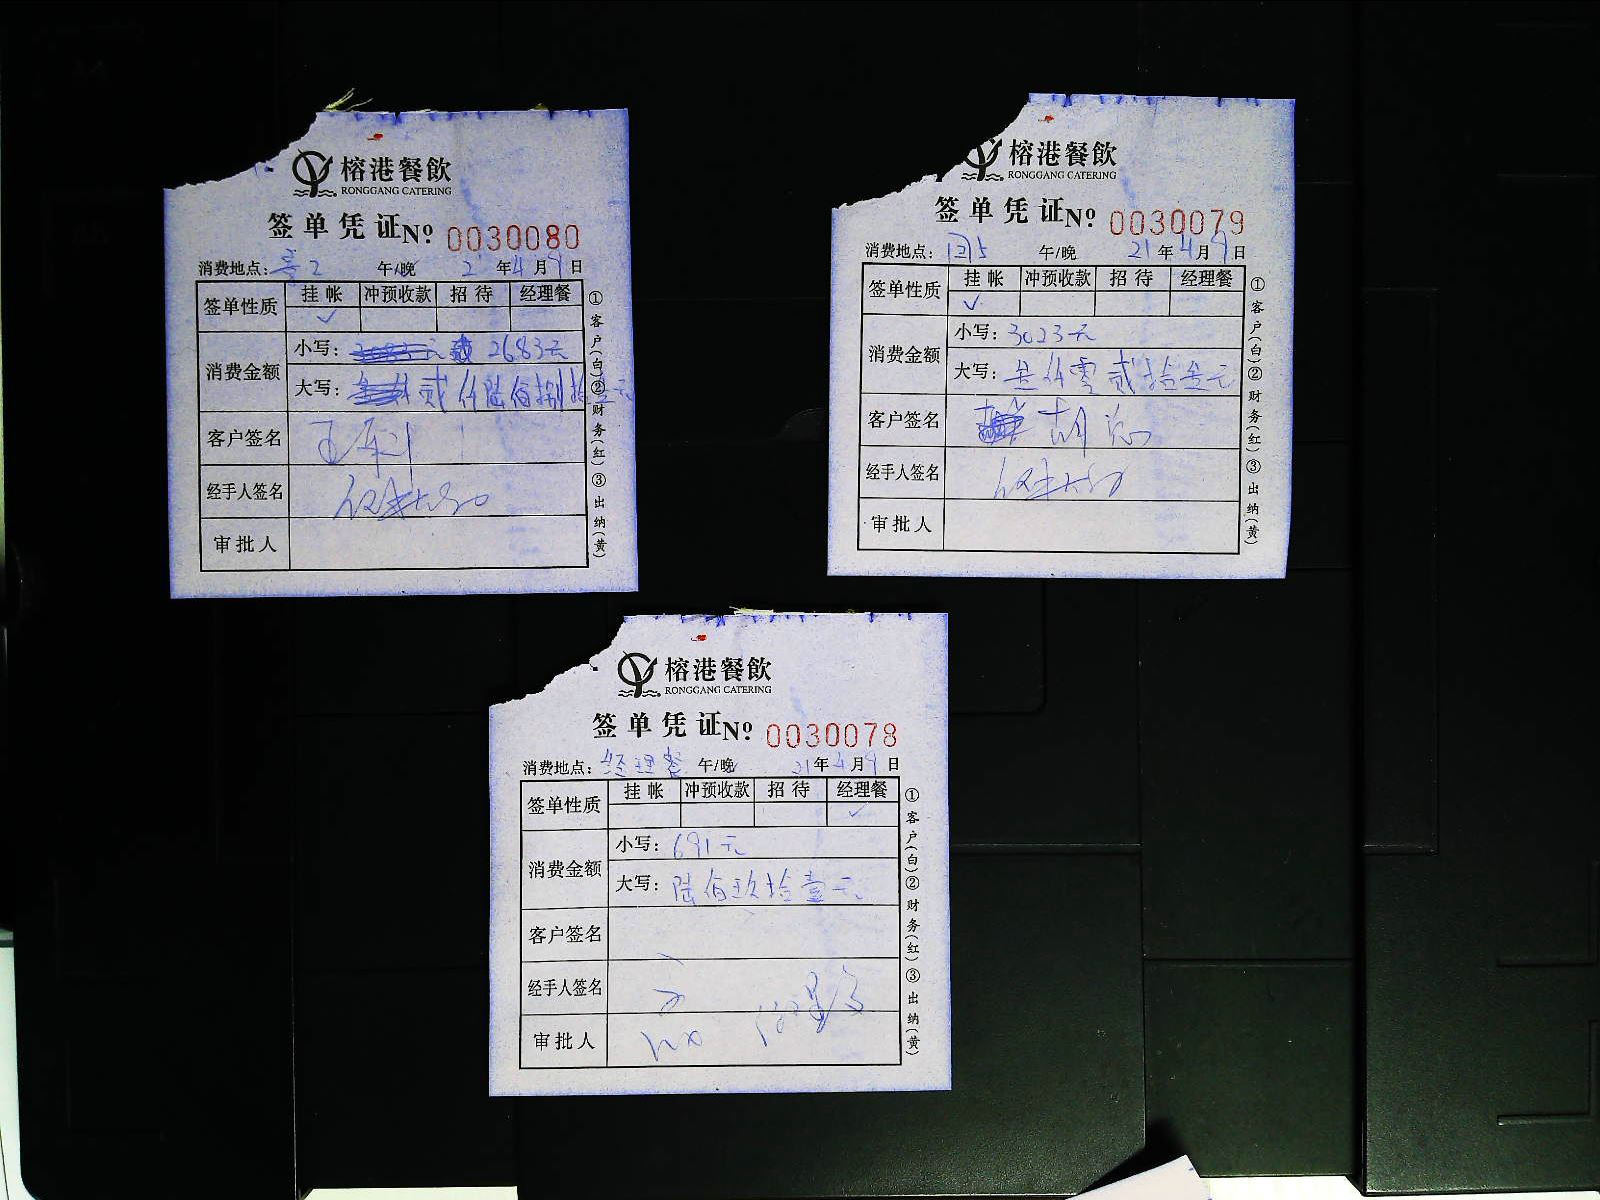 榕港餐飲
RONGGANG CATERING
签单凭证 Nº 0030080
消费地点: 2 午/晚 2 年 4 月 9 日
签单性质 挂帐 冲预收款 招待 经理餐
✓
消费金额 小写: 2683元
大写: 贰仟陆佰捌拾叁元
客户签名
经手人签名
审批人
①客户(白)②财务(红)③出纳(黄)
榕港餐飲
RONGGANG CATERING
签单凭证 Nº 0030079
消费地点: 午/晚 21 年 4 月 9 日
签单性质 挂帐 冲预收款 招待 经理餐
✓
消费金额 小写: 3023元
大写: 叁仟零贰拾叁元
客户签名 胡总
经手人签名
审批人
①客户(白)②财务(红)③出纳(黄)
榕港餐飲
RONGGANG CATERING
签单凭证 Nº 0030078
消费地点: 经理餐 午/晚 21 年 4 月 9 日
签单性质 挂帐 冲预收款 招待 经理餐
✓
消费金额 小写: 691元
大写: 陆佰玖拾壹元
客户签名
经手人签名
审批人
①客户(白)②财务(红)③出纳(黄)